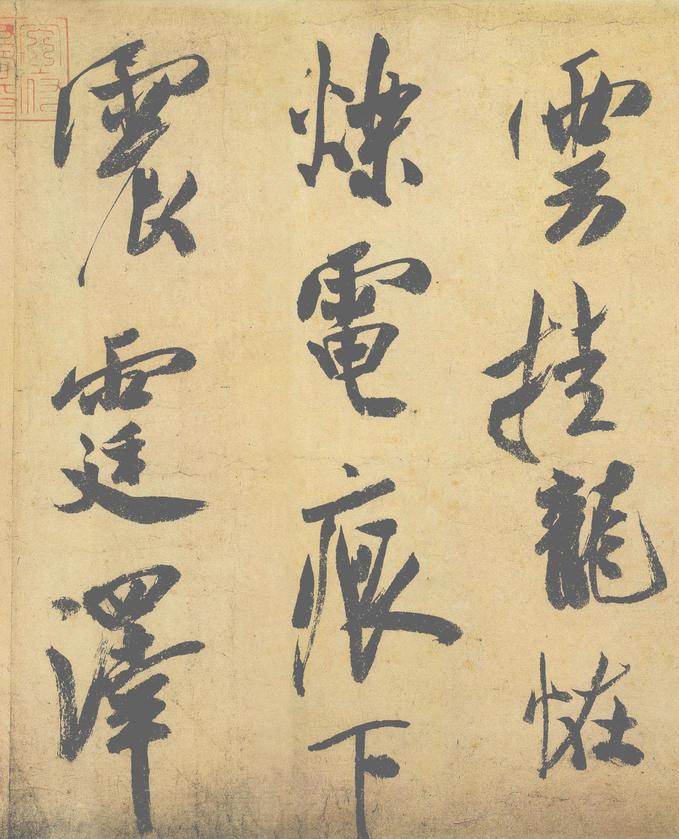 雲挂龍恠
爍電痕下
震霆澤